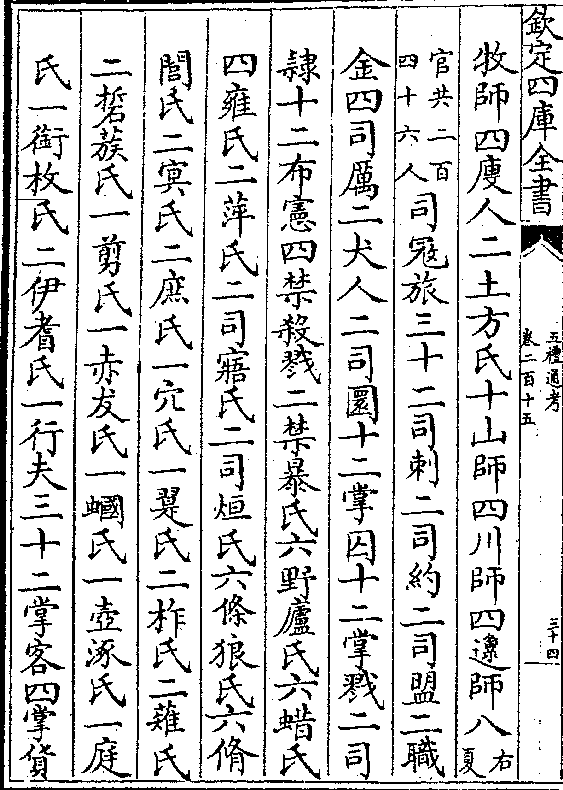 欽定四庫全書
五禮通考
卷二百十五
三十四
牧師四廋人二土方氏十山師四川師四邍師八右夏
官共二百四十六人司冦旅三十二司刺二司約二司盟二職
金四司厲二犬人二司圜十二掌囚十二掌戮二司
隷十二布憲四禁殺戮二禁暴氏六野廬氏六蜡氏
四雍氏二萍氏二司寤氏二司烜氏六條狼氏六脩
閭氏二冥氏二庶氏一穴氏一翨氏二柞氏二薙氏
二硩蔟氏一剪氏一赤犮氏一蟈氏一壺涿氏一庭
氏一銜枚氏二伊耆氏一行夫三十二掌客四掌貨